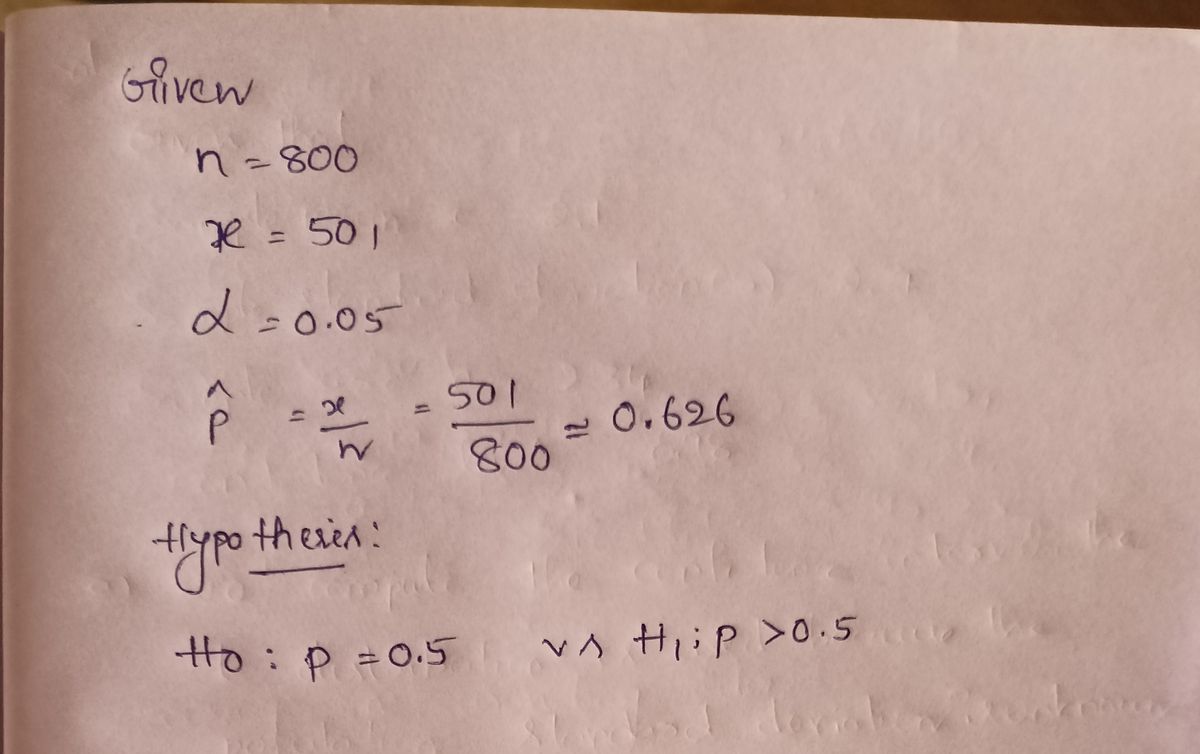 Given
n = 800
x = 501
α = 0.05
p̂ = x/n = 501/800 = 0.626
Hypothesis:
H0 : p = 0.5 vs H1 : p > 0.5